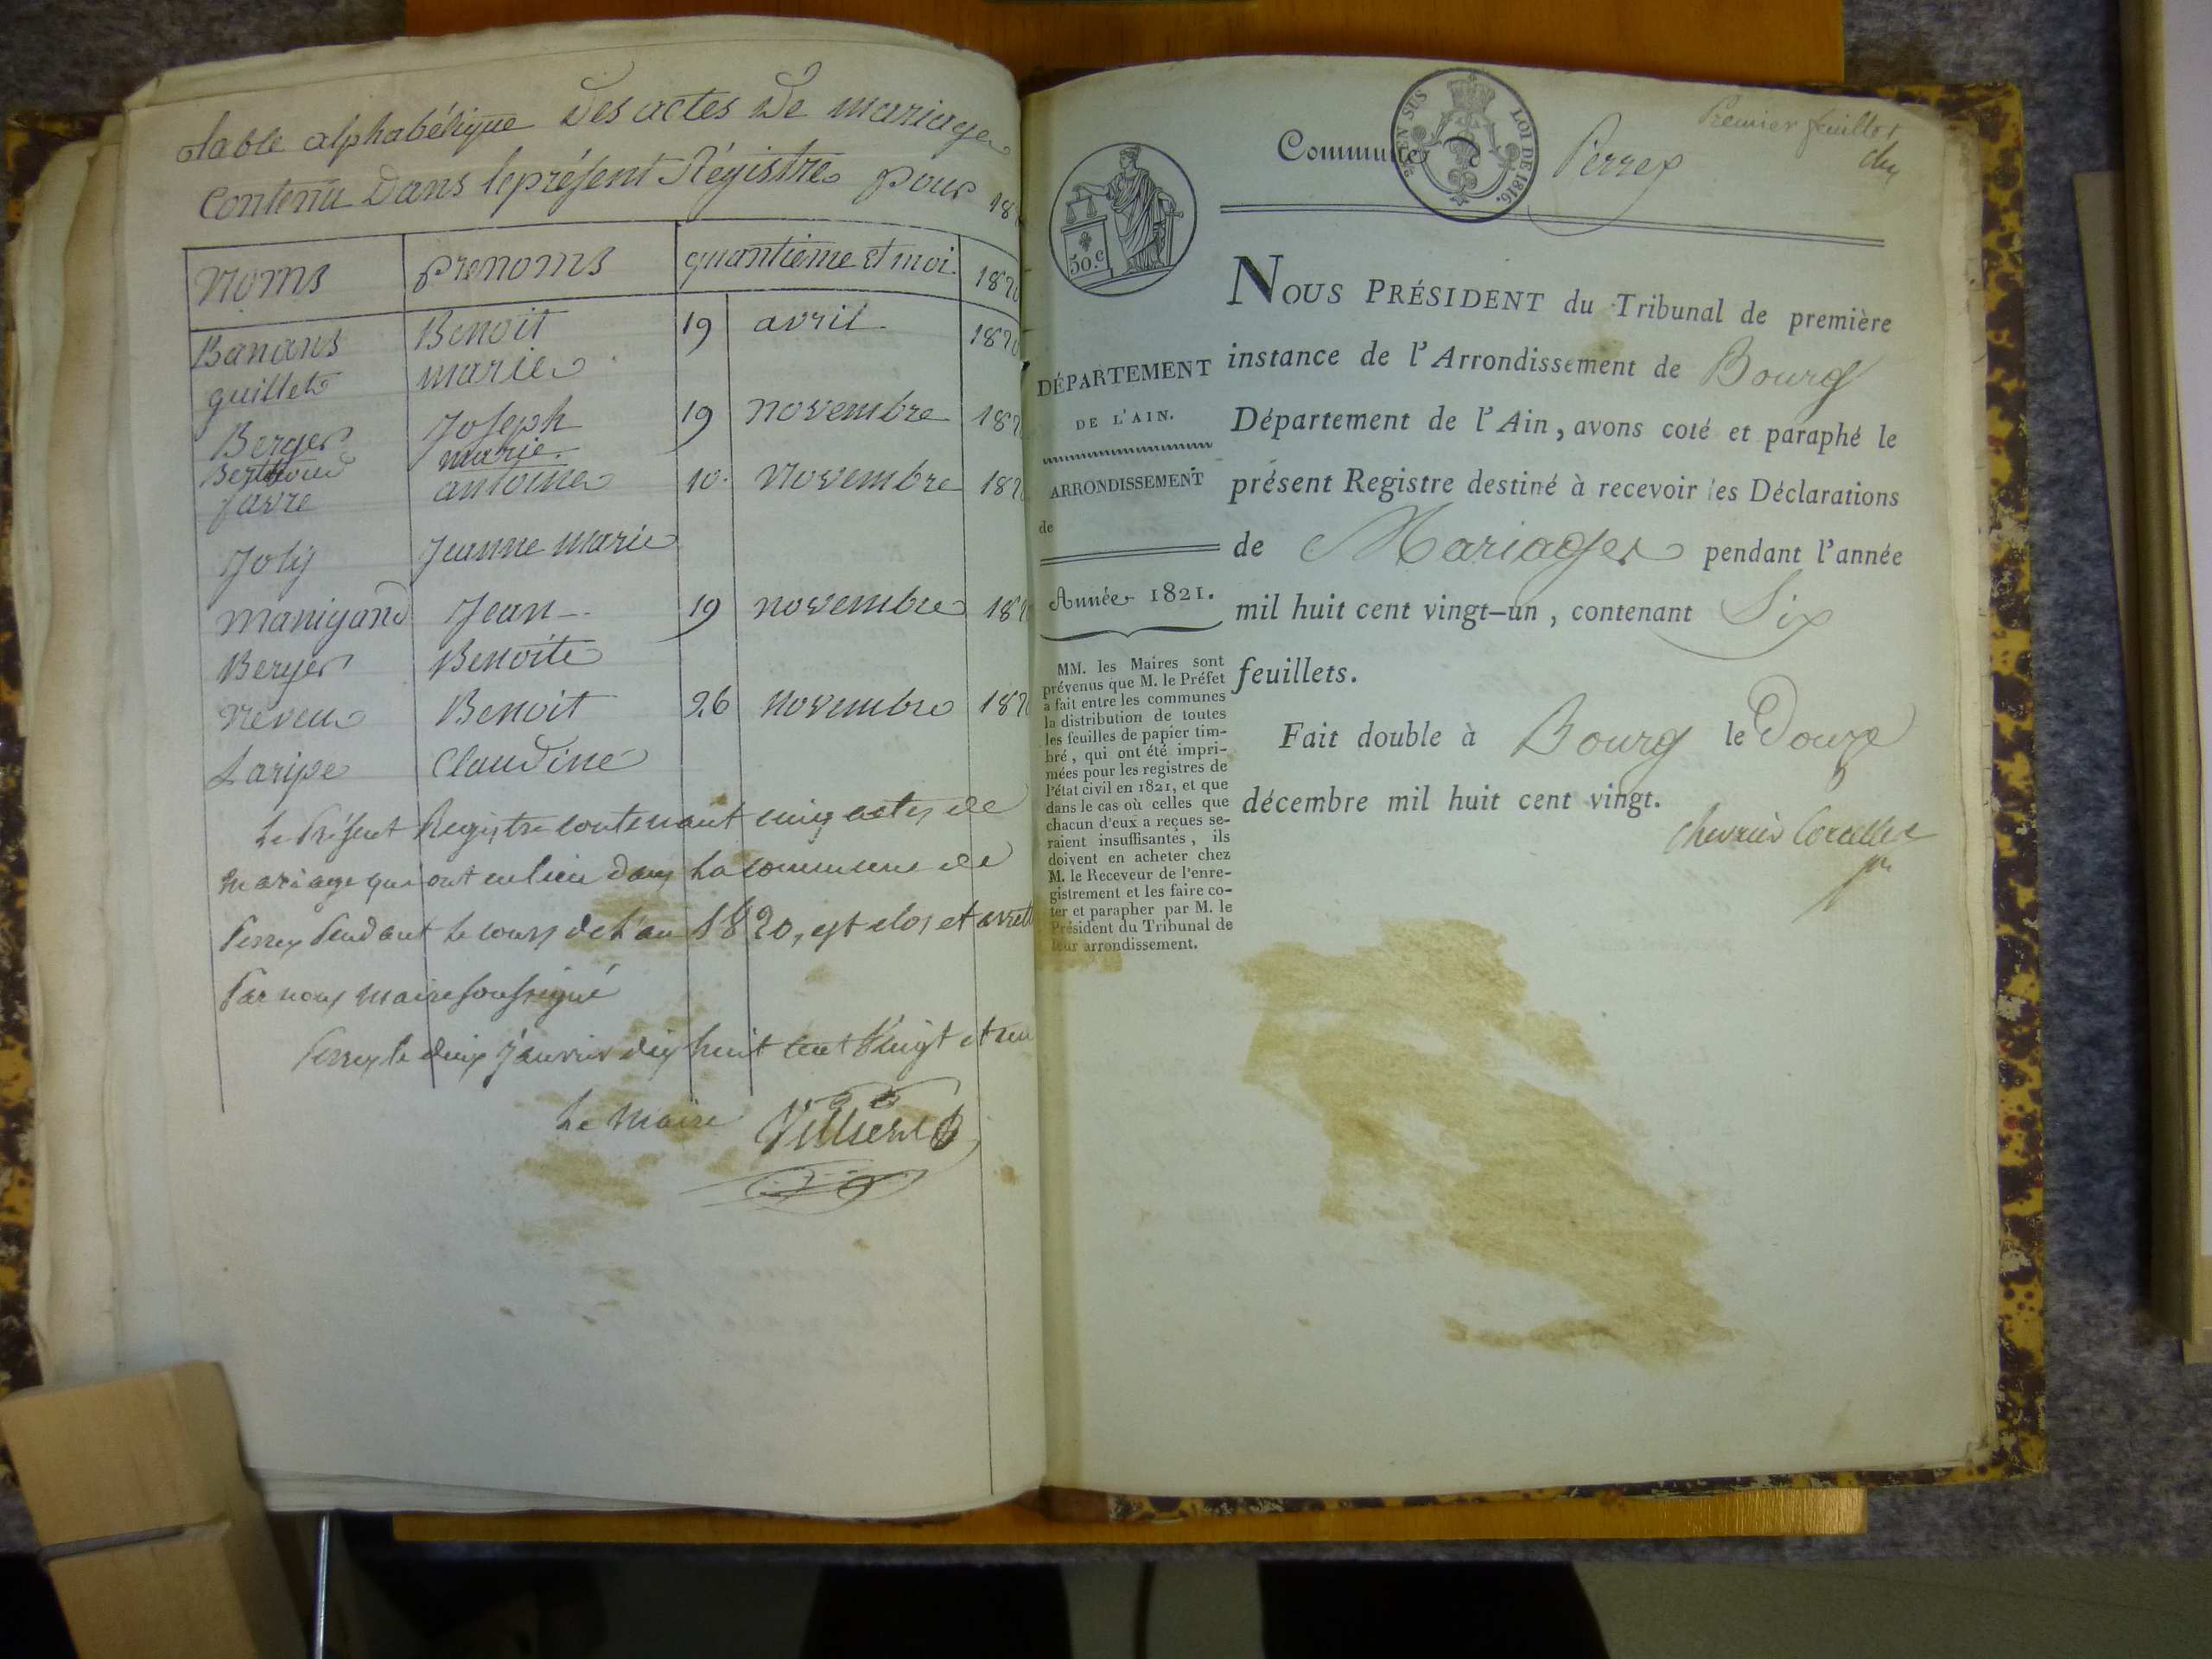 table alphabétique des actes de mariage
Contenu dans le présent Régistre pour 18
noms prenoms quantieme et moi 1820
Banans Benoit 19 avril 1820
guillet marie
Berger Joseph 19 novembre 182
Berthoud marie
favre antoine 10 novembre 182
Joly Jeanne marie
manigand Jean 19 novembre 182
Berger Benoite
neveu Benoit 26 novembre 182
Laripe Claudine
Le Présent Registre contenant cinq actes de
mariage qui ont eu lieu dans la commune de
Perrex Pendant le cours de l'an 1820, est clos et arrett
Par nous maire soussigné
Perrex le deux janvier dix huit cent vingt et un
Le Maire
Premier feuillet
Commune de Perrex
EN SUS LOI DE 1816.
50.c
DÉPARTEMENT
DE L'AIN.
ARRONDISSEMENT
de
Année 1821.
MM. les Maires sont
prévenus que M. le Préfet
a fait entre les communes
la distribution de toutes
les feuilles de papier tim-
bré, qui ont été impri-
mées pour les registres de
l'état civil en 1821, et que
dans le cas où celles que
chacun d'eux a reçues se-
raient insuffisantes, ils
doivent en acheter chez
M. le Receveur de l'enre-
gistrement et les faire co-
ter et parapher par M. le
Président du Tribunal de
leur arrondissement.
NOUS PRÉSIDENT du Tribunal de première
instance de l'Arrondissement de Bourg
Département de l'Ain, avons coté et paraphé le
présent Registre destiné à recevoir les Déclarations
de Mariages pendant l'année
mil huit cent vingt-un, contenant Six
feuillets.
Fait double à Bourg le Douze
décembre mil huit cent vingt.